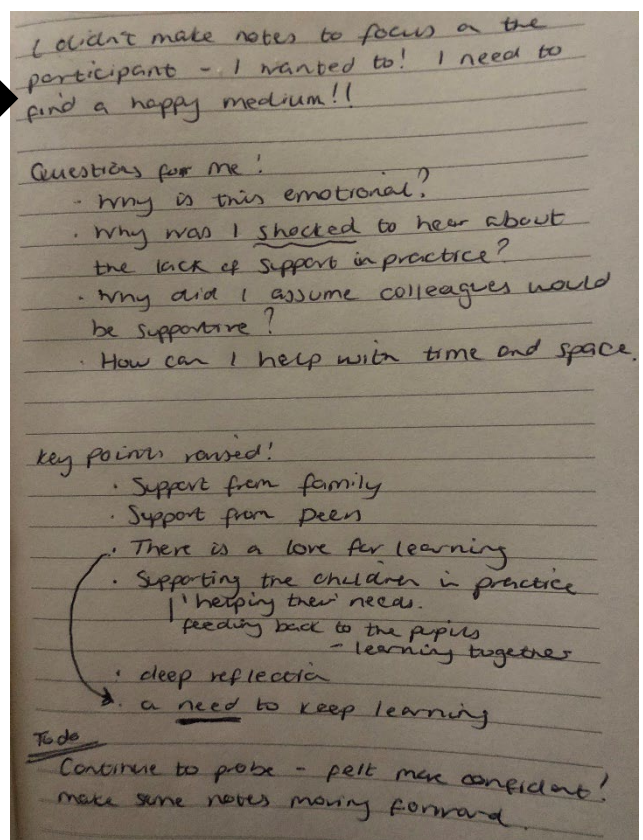 I didn't make notes to focus on the
participant - I wanted to! I need to
find a happy medium!!
Questions for me!
· Why is this emotional?
· Why was I shocked to hear about
the lack of support in practice?
· Why did I assume colleagues would
be supportive?
· How can I help with time and space.
Key points raised!
· Support from family
· Support from peers
· There is a love for learning
· Supporting the children in practice
'helping their needs.
feeding back to the pupils
- learning together
· deep reflection
· a need to keep learning
To do
Continue to probe - felt more confident!
make some notes moving forward.